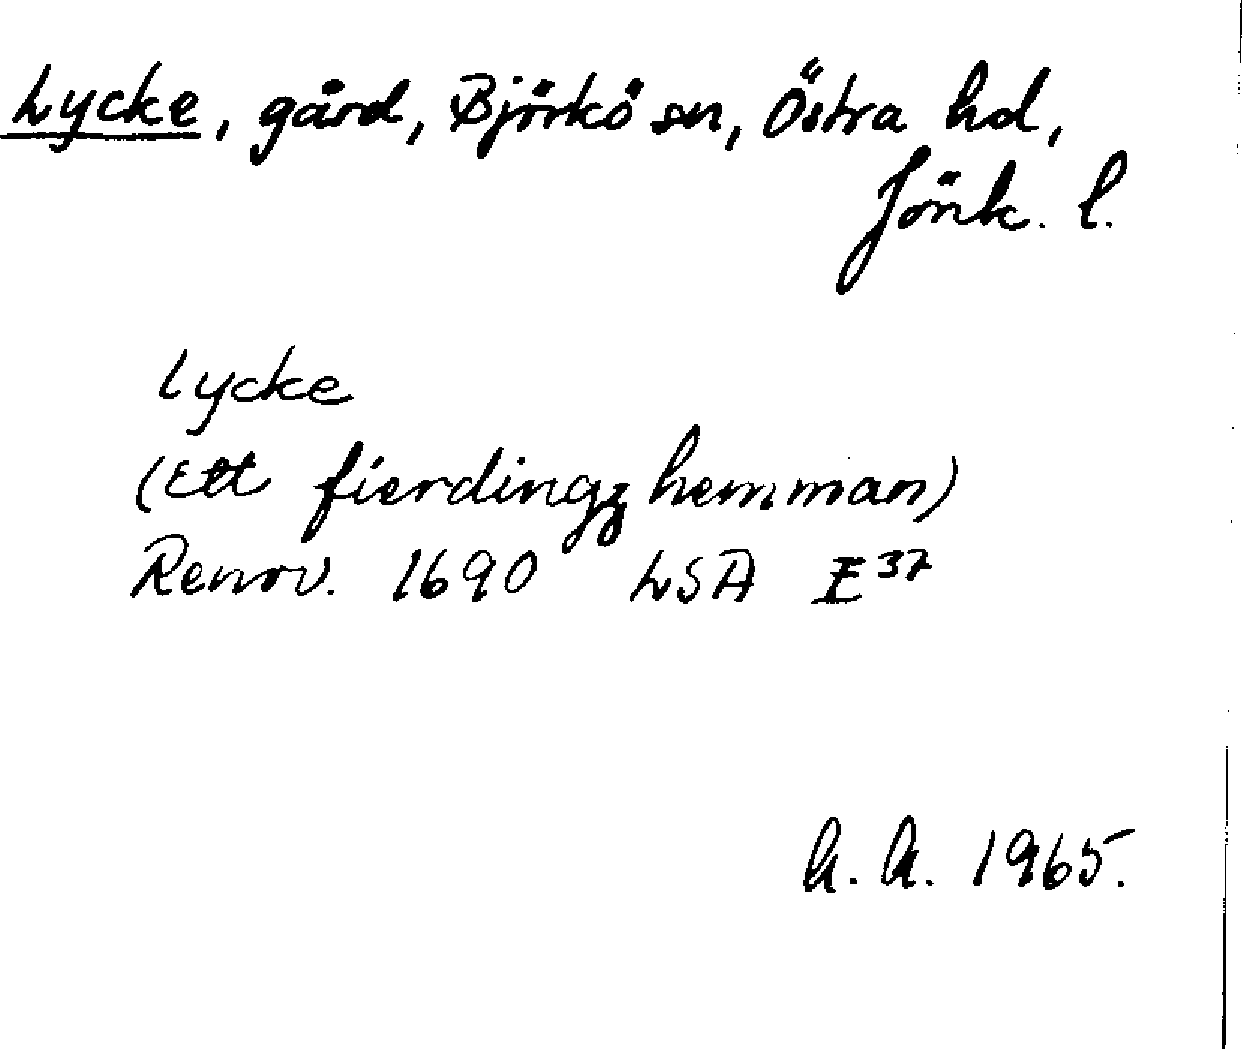 Lycke, gård, Björkö sn, Östra hd,
Jönk. l.
Lycke
(Ett fierdingz hemman)
Renov. 1690 LSA E³⁷
A. A. 1965.